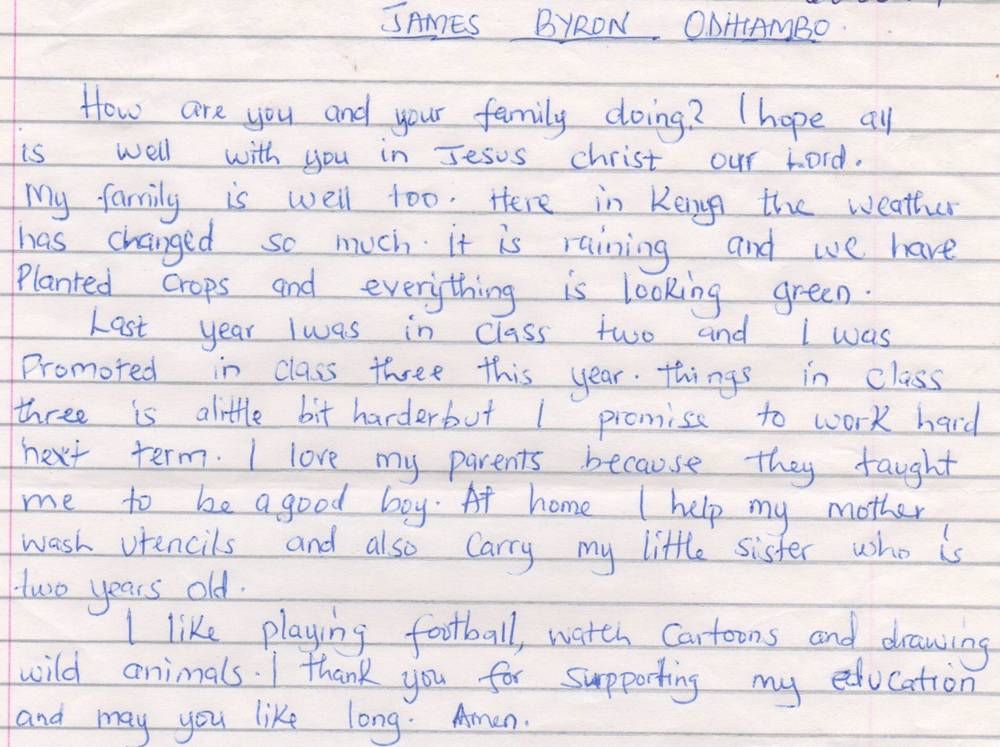 JAMES BYRON ODHIAMBO.
How are you and your family doing? I hope all
is well with you in Jesus christ our Lord.
My family is well too. Here in Kenya the weather
has changed so much. it is raining and we have
Planted crops and everything is looking green.
Last year I was in class two and I was
Promoted in class three this year. things in class
three is alittle bit harderbut I promise to work hard
next term. I love my parents because they taught
me to be a good boy. At home I help my mother
wash utencils and also carry my little sister who is
two years old.
I like playing football, watch cartoons and drawing
wild animals. I thank you for supporting my education
and may you like long. Amen.